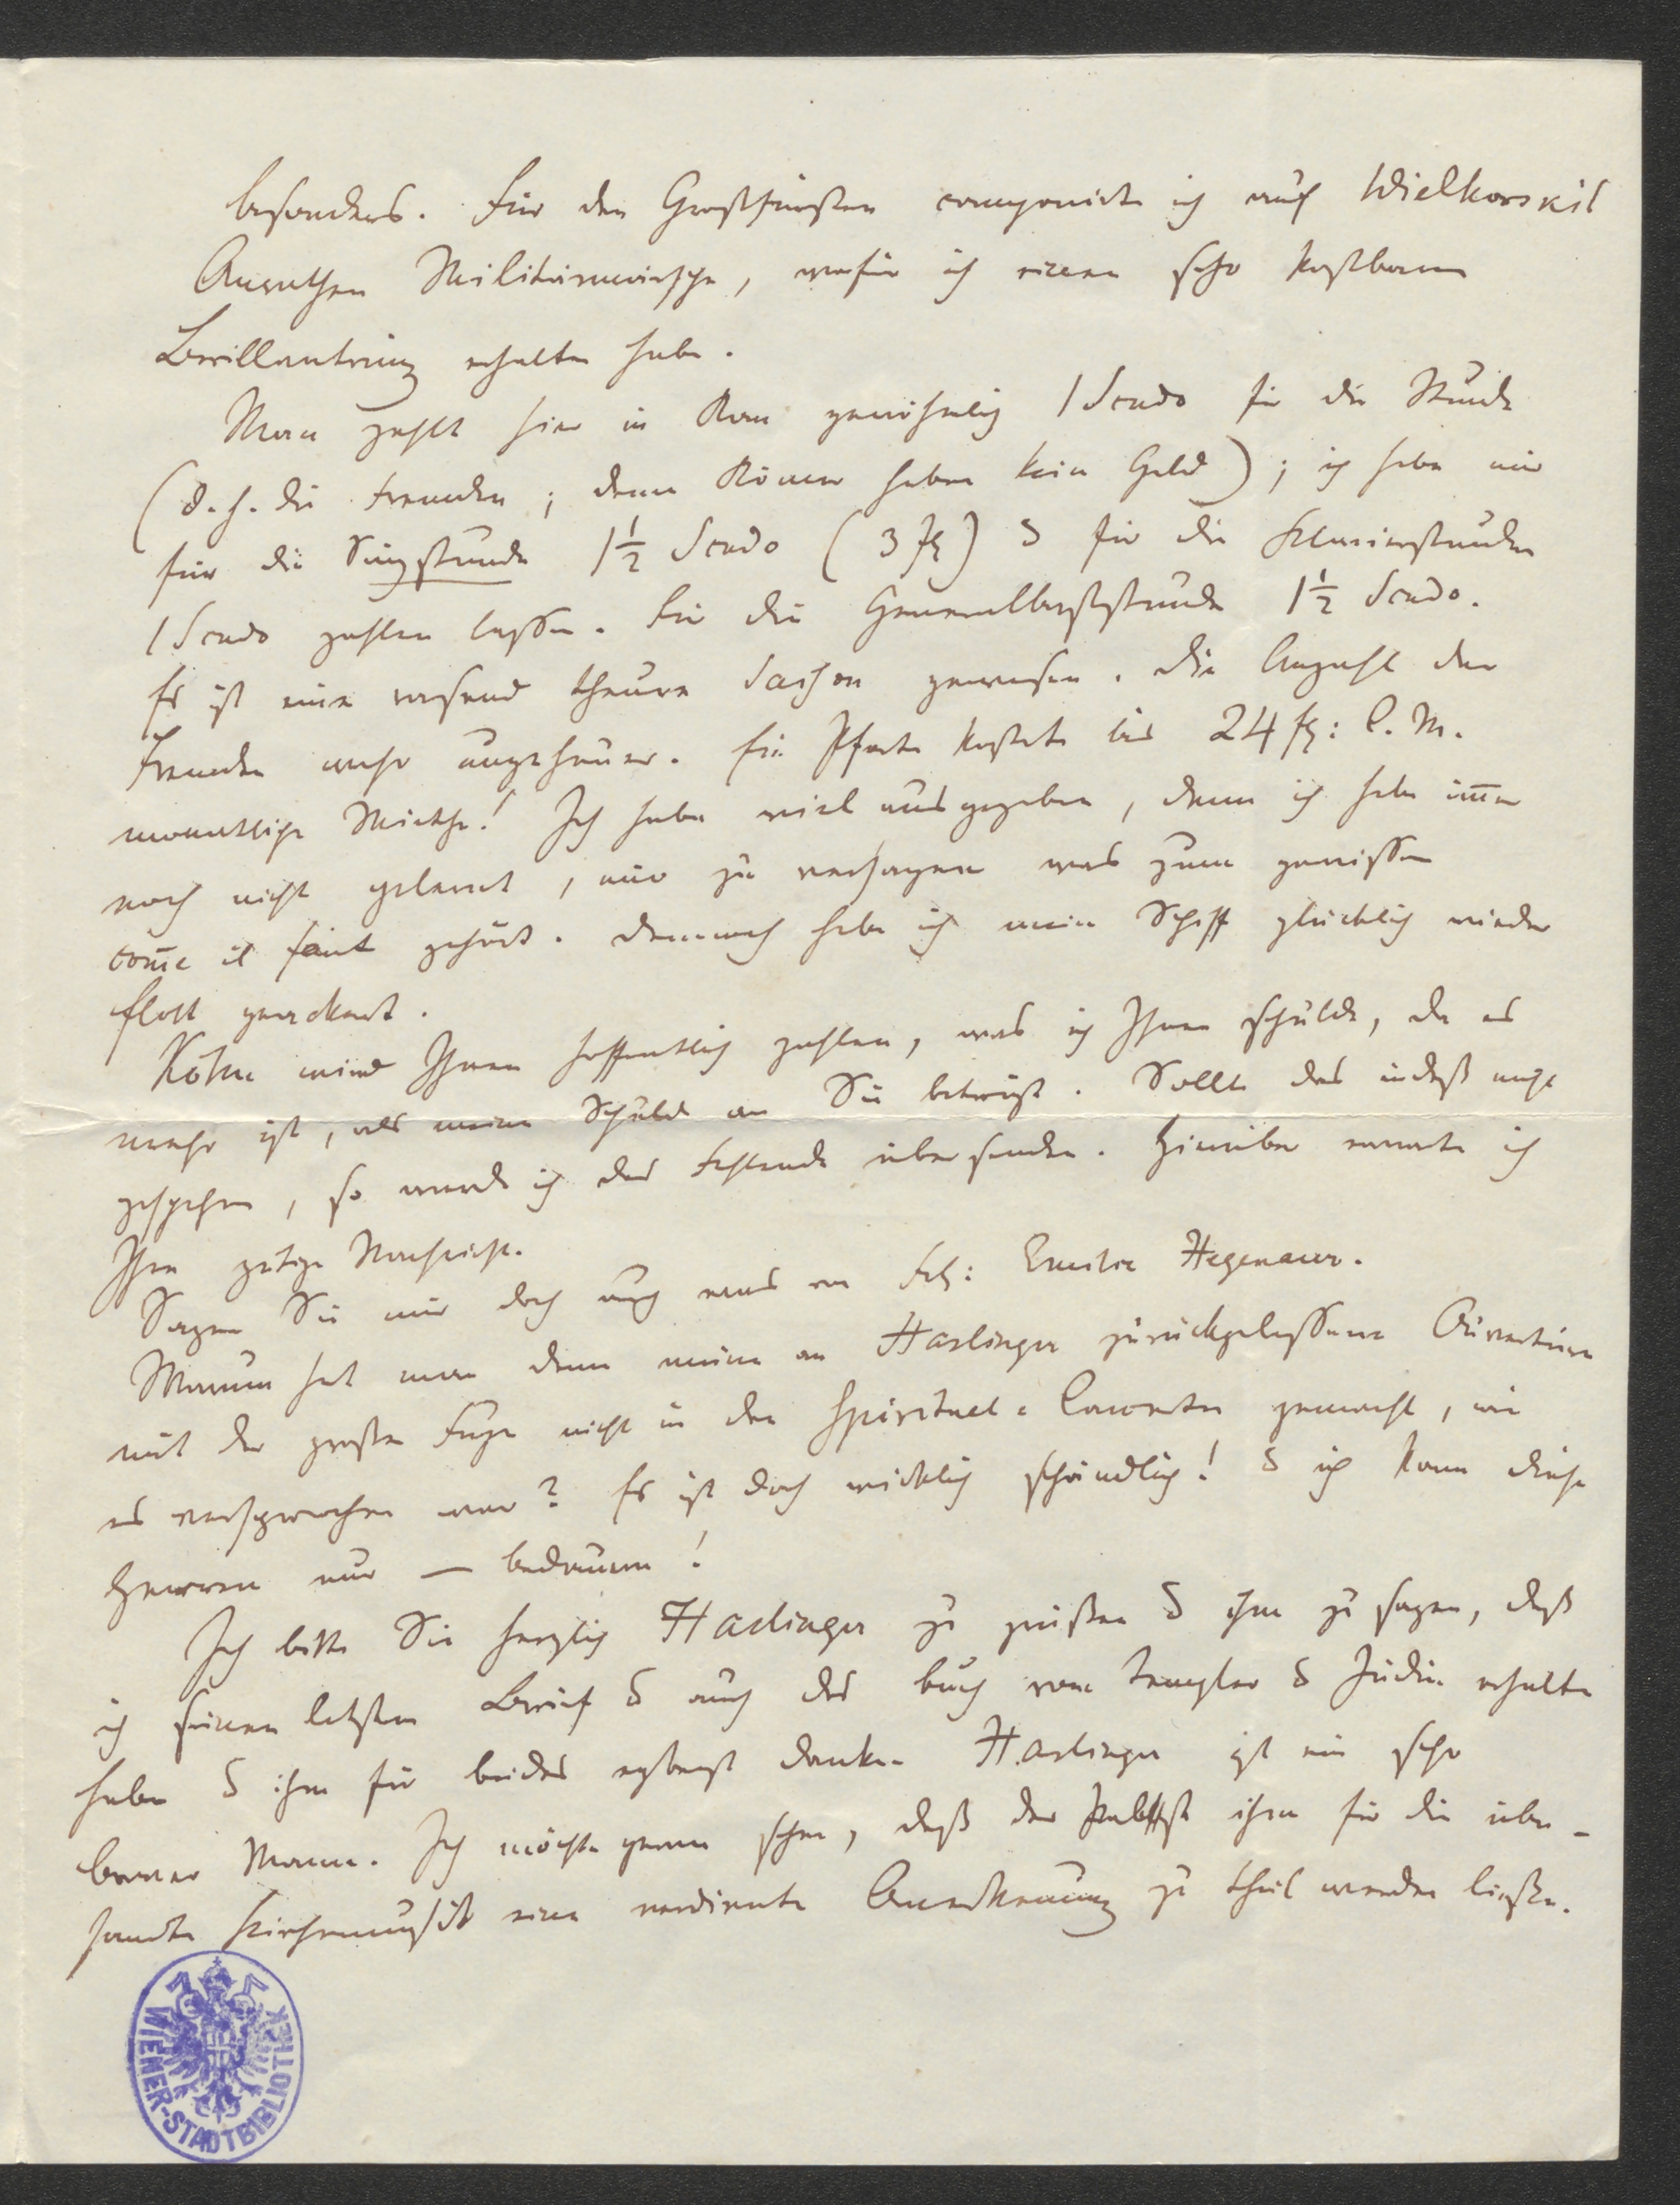 besonders. Für den Großfürsten componirte ich auf Wielkorskis
Anrathen Militärmärsche, wofür ich einen sehr kostbaren
Brillantring erhalten habe.
Man zahlt hier in Rom gewöhnlich 1 Scudo für die Stunde
(d. h. die Fremden; denn Römer haben kein Geld); ich habe mir
für die Singstunde 1½ Scudo (3 fl) & für die Klavierstunden
1 Scudo zahlen lassen. Für die Generalbaßstunde 1½ Scudo.
Es ist eine rasend theure Saison gewesen. Die Anzahl der
Fremden war ungeheuer. Ein Pferd kostete bis 24 fl: C. M.
monatliche Miethe! Ich habe viel ausgegeben, denn ich habe im̄er
noch nicht gelernt, mir zu versagen was zum gewissen
com̄e il faut gehört. Dennoch habe ich mein Schiff glücklich wieder
flott gemacht.
wird Ihnen hoffentlich zahlen, was ich Ihnen schulde, da es
mehr ist, als meine Schuld an Sie beträgt. Sollte das indeß nicht
geschehen, so werde ich das Fehlende übersenden. Hierüber erwarte ich
Ihre gütige Nachricht.
Sagen Sie mir doch auch was von Frl: Emilie Hegenauer.
Warum hat man denn meine an Haslinger zurückgelassene Ouvertüre
mit der großen Fuge nicht in den Spirituel-Concerten gemacht, wie
es versprochen war? Es ist doch wirklich schändlich! & ich kann diese
Herren nur — bedauern!
Ich bitte Sie herzlich Haslinger zu grüßen & ihm zu sagen, daß
ich seinen letzten Brief & auch das Buch vom Templer & Jüdin erhalten
habe & ihm für beides ergebenst danke. Haslinger ist ein sehr
braver Mann. Ich möchte gerne sehen, daß der Pabst ihm für die über-
sandte Kirchenmusik eine verdiente Anerkennung zu theil werden ließe.
WIENER-STADTBIBLIOTHEK